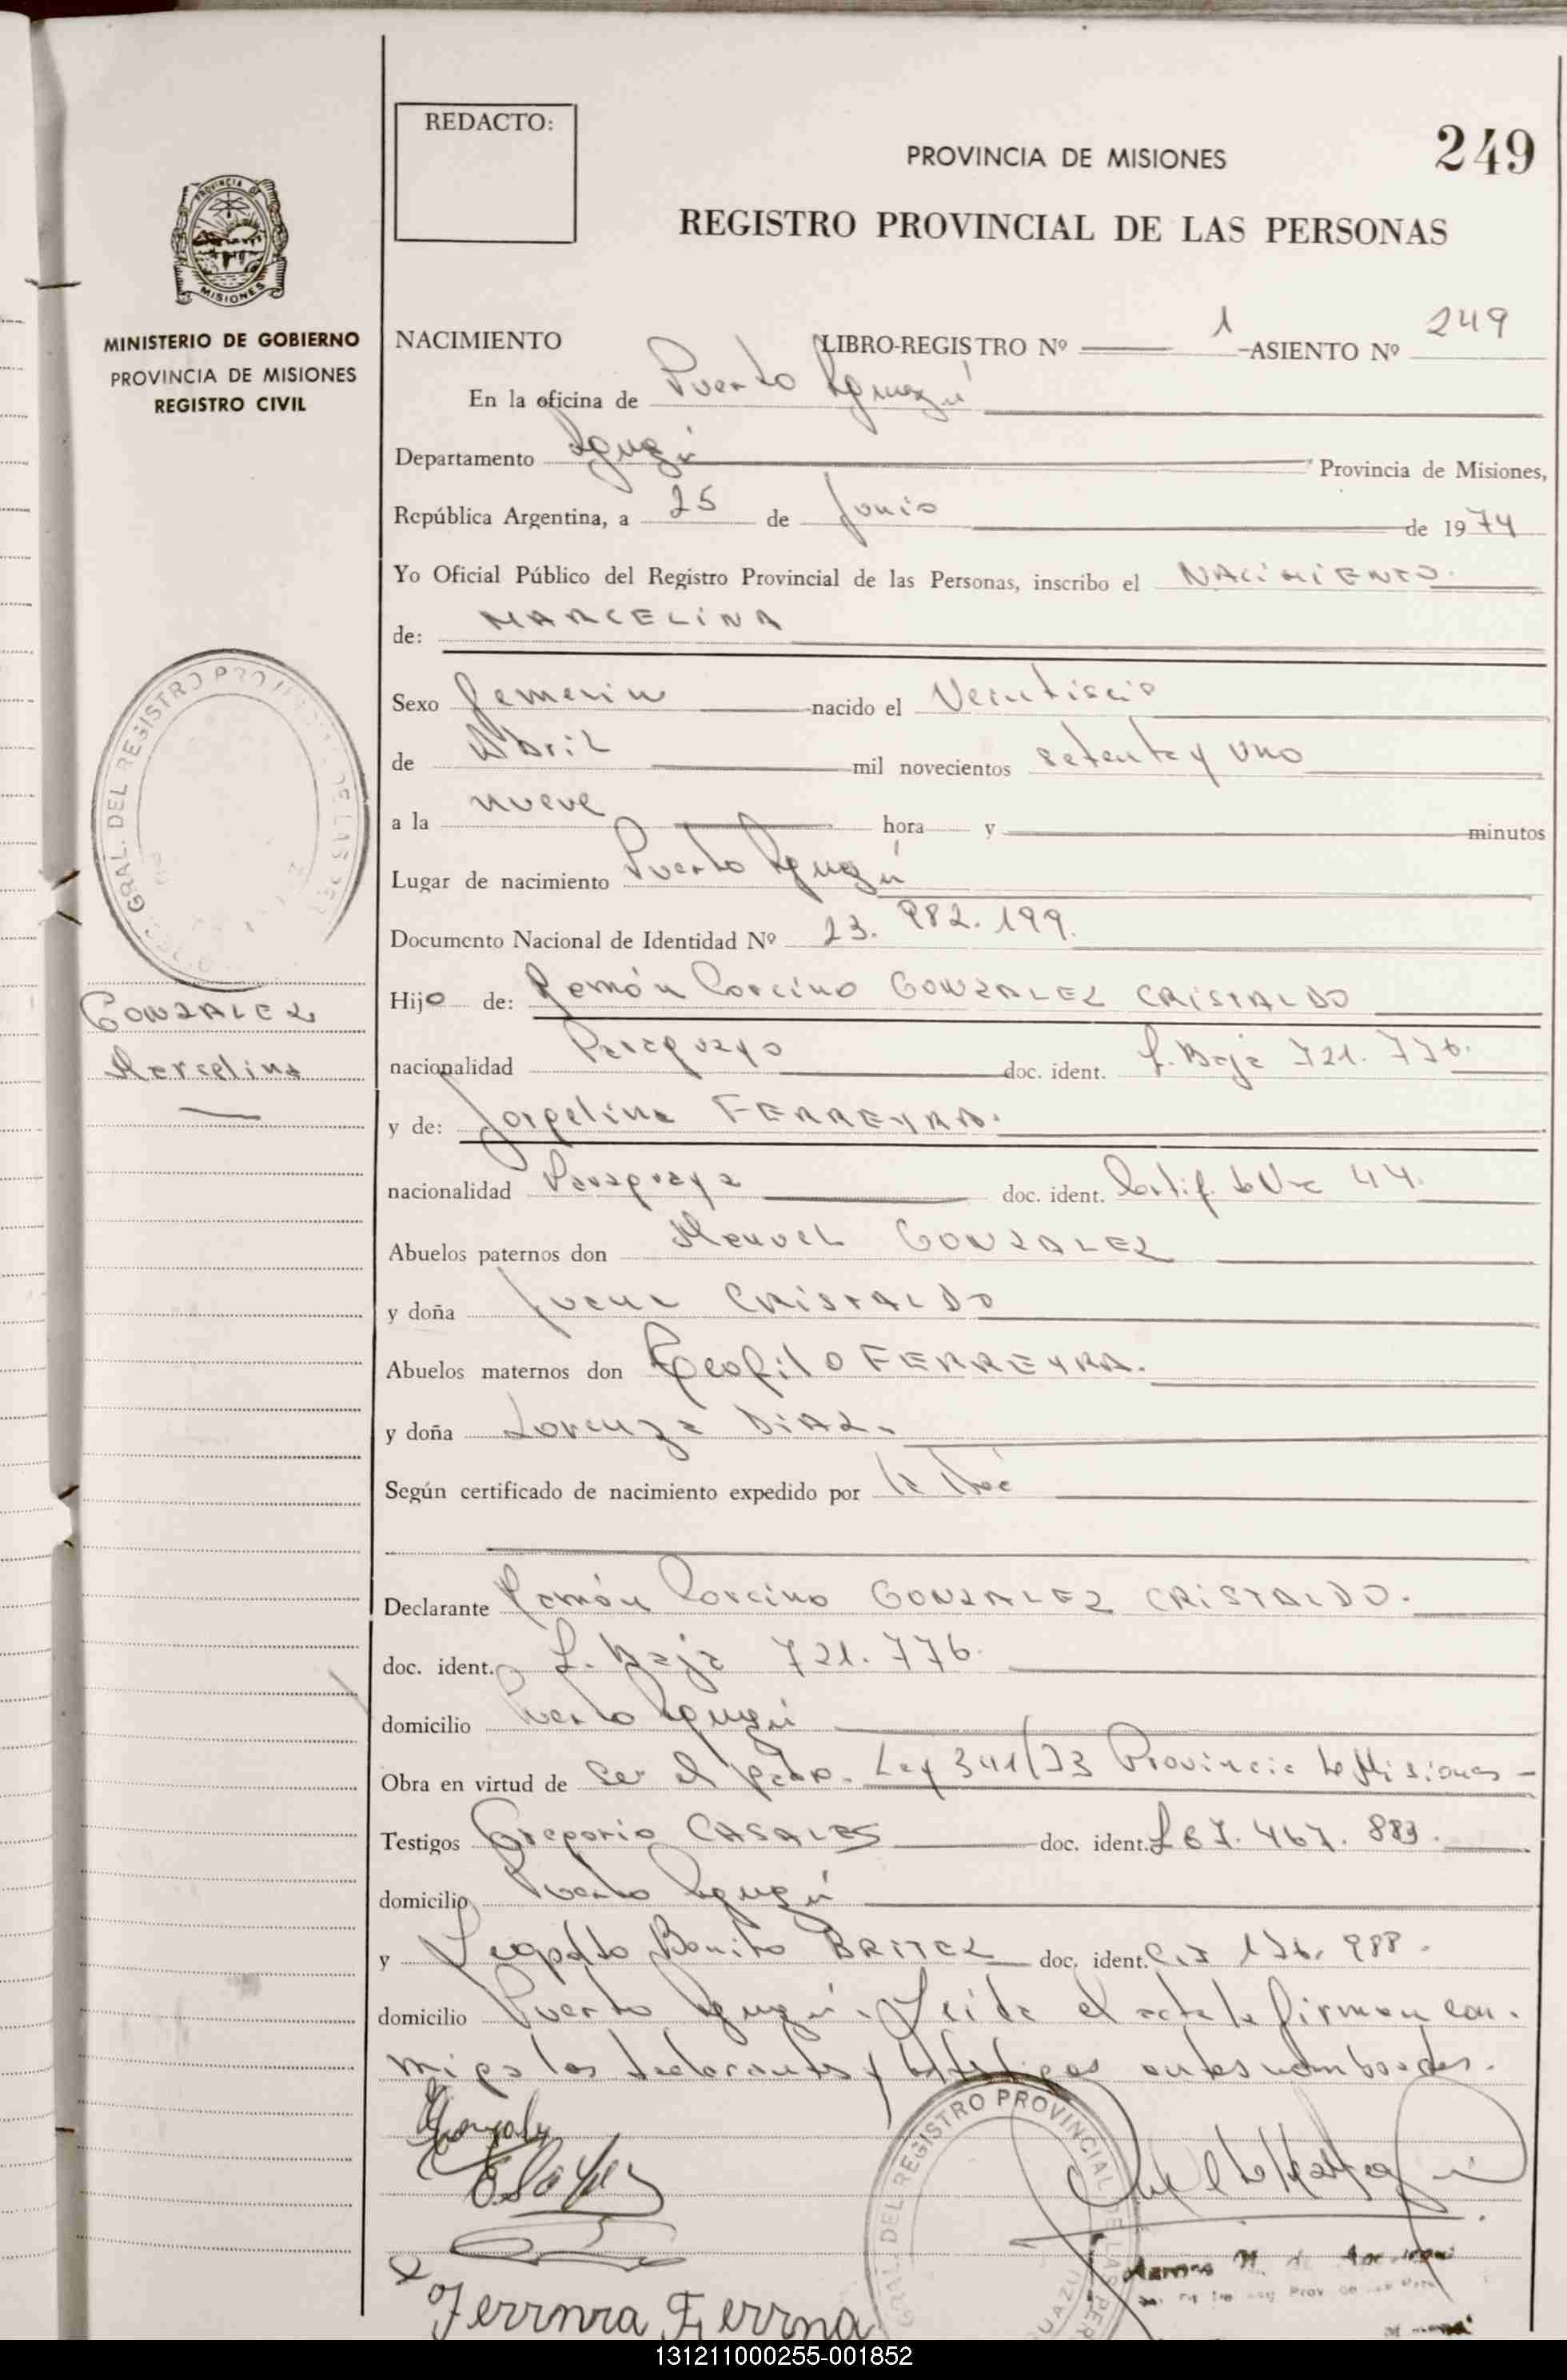 REDACTO:
PROVINCIA DE MISIONES
249
REGISTRO PROVINCIAL DE LAS PERSONAS
PROVINCIA DE
MISIONES
MINISTERIO DE GOBIERNO
PROVINCIA DE MISIONES
REGISTRO CIVIL
GRAL. DEL REGISTRO PROVINCIAL DE LAS PER
GONZALEZ
Marcelina
NACIMIENTO LIBRO-REGISTRO Nº 1 ASIENTO Nº 249
En la oficina de Puerto Iguazú
Departamento Iguazú Provincia de Misiones,
República Argentina, a 25 de Junio de 1974
Yo Oficial Público del Registro Provincial de las Personas, inscribo el NACIMIENTO.
de: MARCELINA
Sexo femenino nacido el Veintiseis
de Abril mil novecientos setenta y uno
a la nueve hora y minutos
Lugar de nacimiento Puerto Iguazú
Documento Nacional de Identidad Nº 23. 982. 199.
Hijo de: Ramón Corcino GONZALEZ CRISTALDO
nacionalidad Paraguayo doc. ident. f. Baja 721. 776.
y de: Jorgelina FERREYRA.
nacionalidad Paraguaya doc. ident. Certif. de Vec 44.
Abuelos paternos don Manuel GONZALEZ
y doña Juana CRISTALDO
Abuelos maternos don Teofilo FERREYRA.
y doña Lorenza DIAZ.
Según certificado de nacimiento expedido por
Declarante Ramón Corcino GONZALEZ CRISTALDO.
doc. ident. f. Baja 721. 776.
domicilio Puerto Iguazú
Obra en virtud de ser el padre. Ley 341/73 Provincia de Misiones
Testigos Gregorio CASALES doc. ident. 7. 467. 883.
domicilio Puerto Iguazú
y Leopoldo Benito BRITEZ doc. ident. 176. 988.
domicilio Puerto Iguazú. Leída el acta la firman con-
migo los declarantes y testigos antes nombrados.
Gonzalez
GRAL. DEL REGISTRO PROVINCIAL DE LAS PER
131211000255-001852